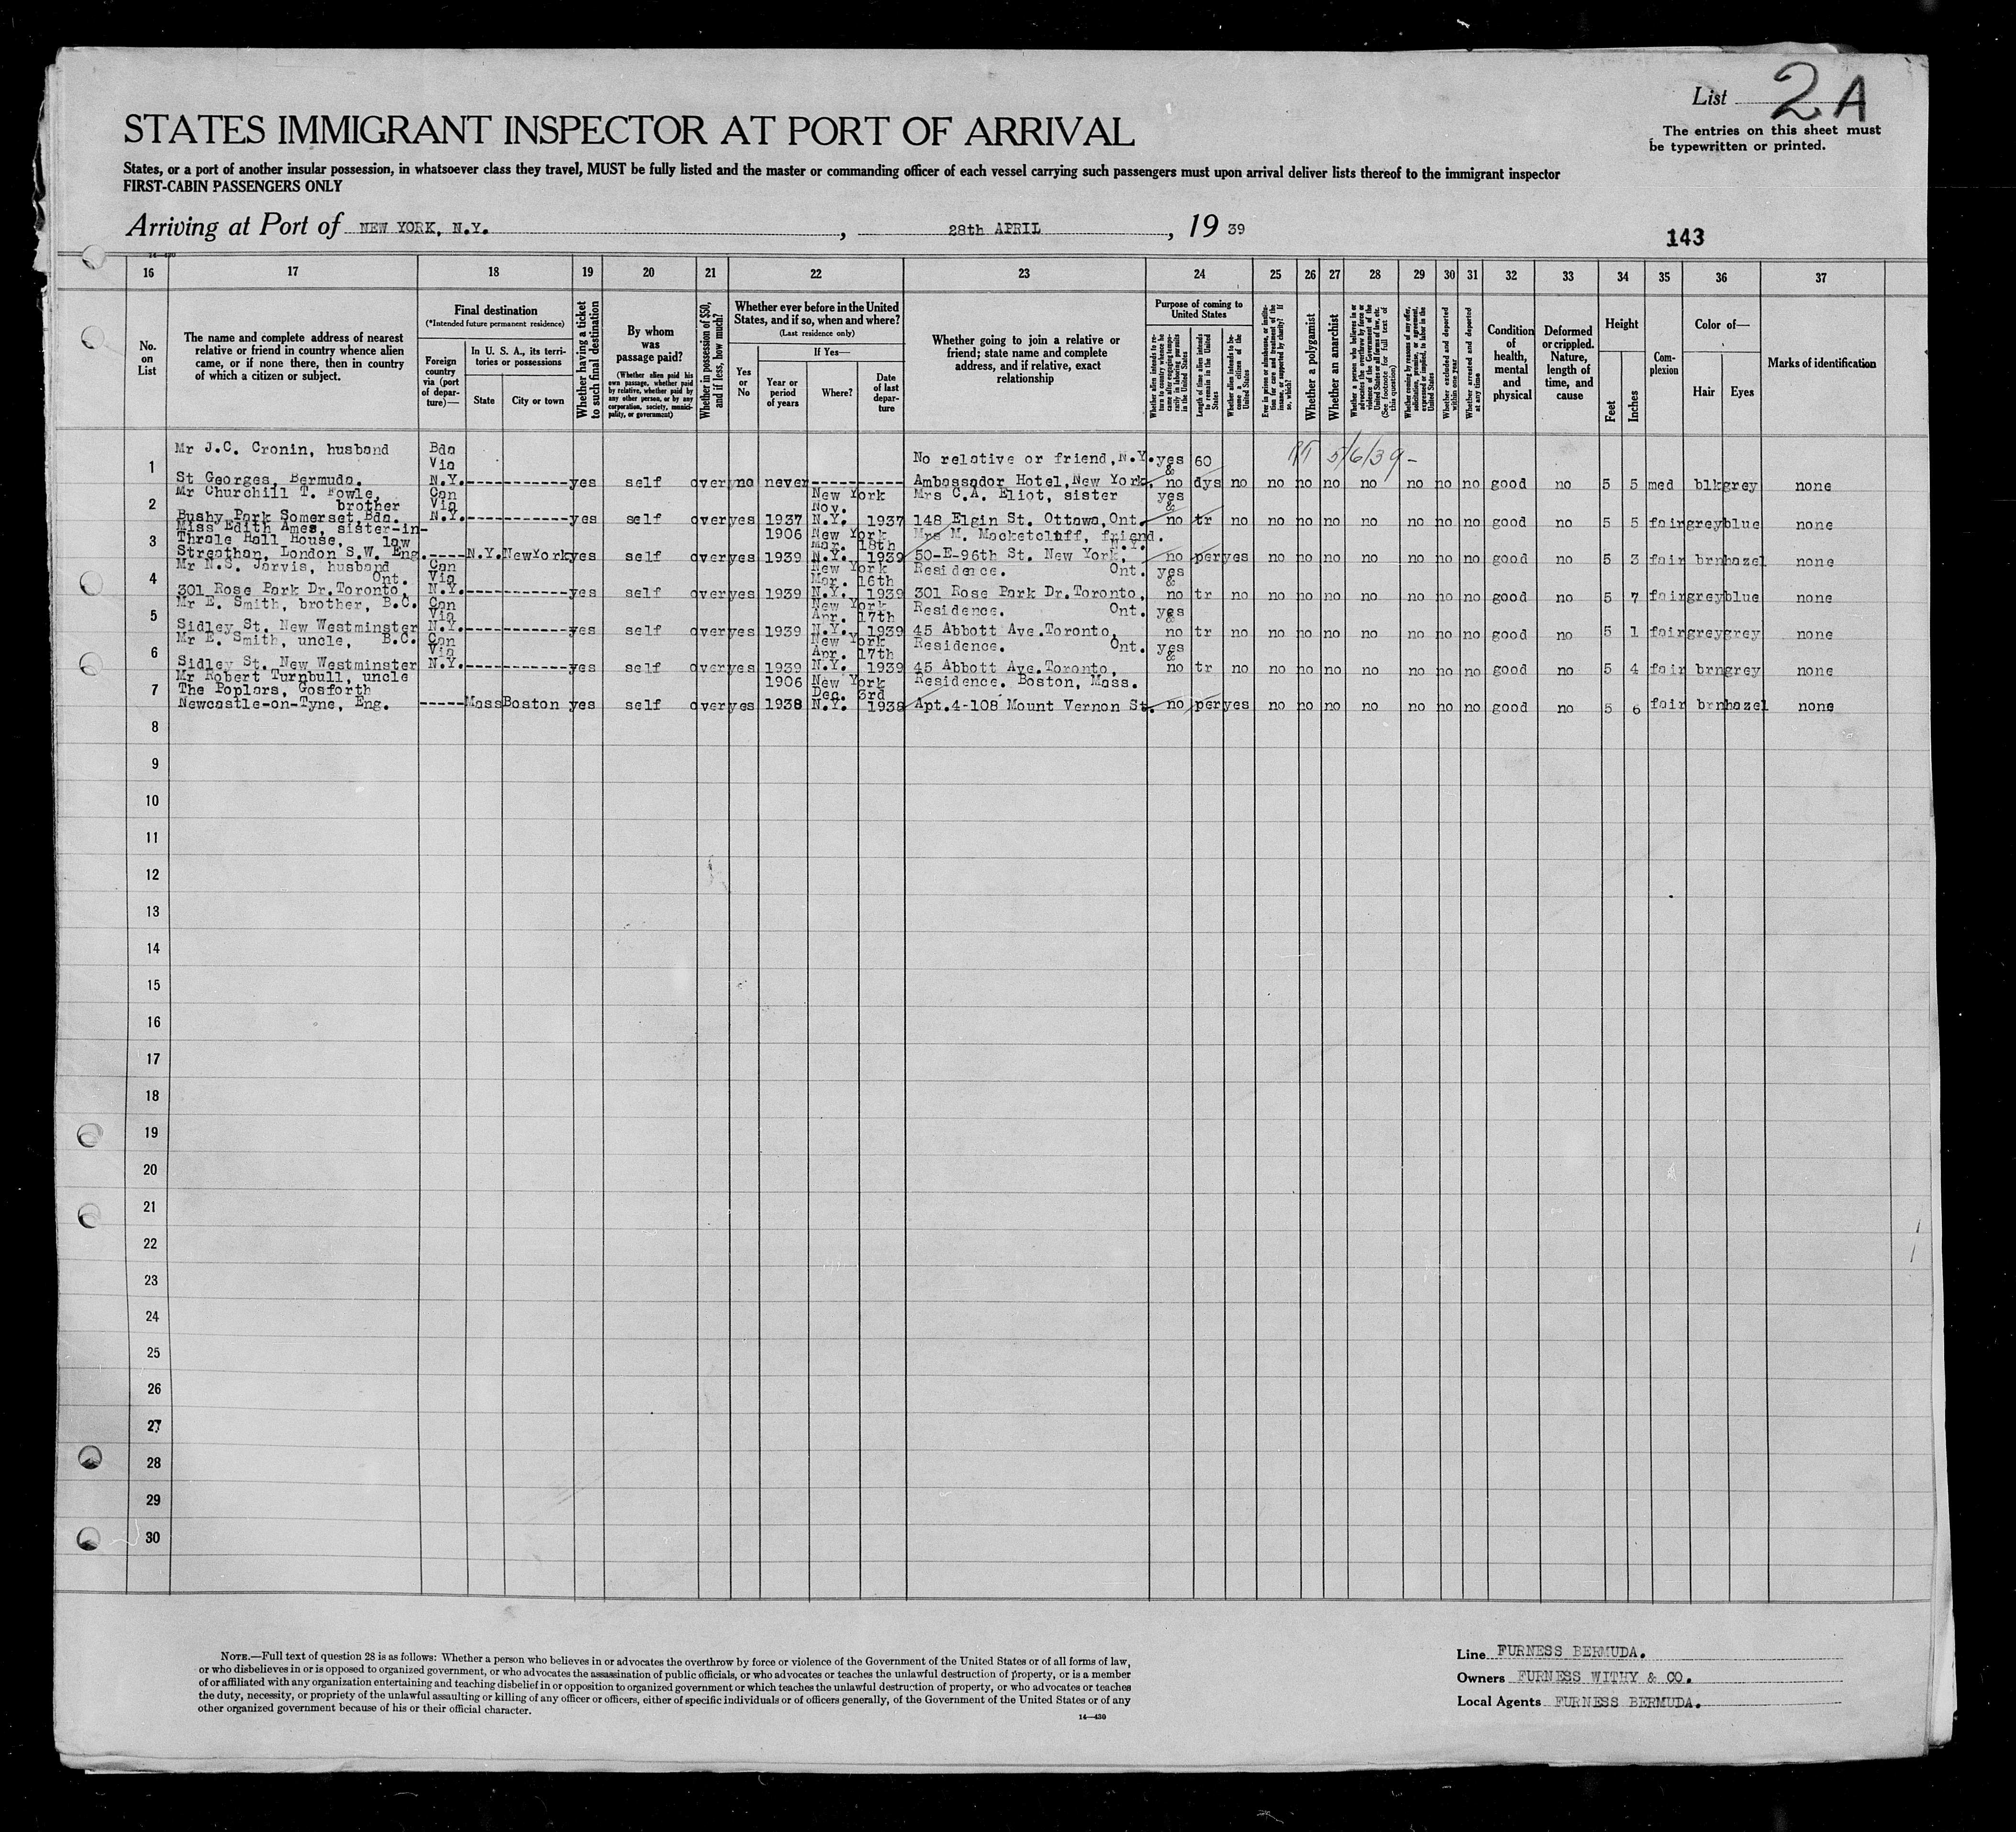 List 2A
The entries on this sheet must
be typewritten or printed.
STATES IMMIGRANT INSPECTOR AT PORT OF ARRIVAL
States, or a port of another insular possession, in whatsoever class they travel, MUST be fully listed and the master or commanding officer of each vessel carrying such passengers must upon arrival deliver lists thereof to the immigrant inspector
FIRST-CABIN PASSENGERS ONLY
Arriving at Port of NEW YORK, N.Y. , 28th APRIL , 19 39
143
14-430
16 17 18 19 20 21 22 23 24 25 26 27 28 29 30 31 32 33 34 35 36 37
No. on List
The name and complete address of nearest
relative or friend in country whence alien
came, or if none there, then in country
of which a citizen or subject.
Final destination
(*Intended future permanent residence)
Foreign country via (port of departure)—
In U. S. A., its territories or possessions
State City or town
Whether having a ticket to such final destination
By whom was passage paid?
(Whether alien paid his own passage, whether paid by relative, whether paid by any other person, or by any corporation, society, municipality, or government)
Whether in possession of $50, and if less, how much?
Whether ever before in the United
States, and if so, when and where?
(Last residence only)
Yes or No
If Yes—
Year or period of years
Where?
Date of last departure
Whether going to join a relative or
friend; state name and complete
address, and if relative, exact
relationship
Purpose of coming to United States
Length of time alien intends to remain in the United States
Whether alien intends to become a citizen of the United States
Whether a polygamist
Whether an anarchist
(See footnote for full text of this question)
Whether excluded and deported within one year
Whether arrested and deported at any time
Condition of health, mental and physical
Deformed or crippled. Nature, length of time, and cause
Height
Feet Inches
Complexion
Color of—
Hair Eyes
Marks of identification
5/6/39-
1 Mr J.C. Cronin, husband
St Georges, Bermuda. Bda Via N.Y. yes self over no never No relative or friend, N.Y. Ambassador Hotel, New York. yes & no 60 dys no no no no no no no no good no 5 5 med blk grey none
2 Mr Churchill T. Fowle, brother
Bushy Park Somerset, Bda. Can Via N.Y. yes self over yes 1937 New York N.Y. Nov. 1937 Mrs C.A. Eliot, sister 148 Elgin St. Ottawa, Ont. yes & no tr no no no no no no no no good no 5 5 fair grey blue none
3 Miss Edith Ames, sister-in-law
Thrale Hall House,
Streathan, London S.W. Eng. ---- N.Y. NewYork yes self over yes 1906 1939 New York N.Y. Mar. 18th 1939 Mrs M. friend. 50-E-96th St. New York, N.Y. no per yes no no no no no no no good no 5 3 fair brn hazel none
4 Mr N.S. Jarvis, husband
301 Rose Park Dr. Toronto, Ont. Can Via N.Y. yes self over yes 1939 New York N.Y. Mar. 16th 1939 Residence. 301 Rose Park Dr. Toronto, Ont. yes & no tr no no no no no no no no good no 5 7 fair grey blue none
5 Mr E. Smith, brother, B.C.
Sidley St. New Westminster Can Via N.Y. yes self over yes 1939 New York N.Y. Apr. 17th 1939 Residence. 45 Abbott Ave. Toronto, Ont. yes & no tr no no no no no no no no good no 5 1 fair grey grey none
6 Mr E. Smith, uncle, B.C.
Sidley St. New Westminster Can Via N.Y. yes self over yes 1939 New York N.Y. Apr. 17th 1939 Residence. 45 Abbott Ave. Toronto, Ont. yes & no tr no no no no no no no no good no 5 4 fair brn grey none
7 Mr Robert Turnbull, uncle
The Poplars, Gosforth
Newcastle-on-Tyne, Eng. ----- Mass Boston yes self over yes 1906 1938 New York N.Y. Dec. 3rd 1938 Residence. Boston, Mass. Apt.4-108 Mount Vernon St. no per yes no no no no no no no good no 5 6 fair brn hazel none
8
9
10
11
12
13
14
15
16
17
18
19
20
21
22
23
24
25
26
27
28
29
30
NOTE.—Full text of question 28 is as follows: Whether a person who believes in or advocates the overthrow by force or violence of the Government of the United States or of all forms of law,
or who disbelieves in or is opposed to organized government, or who advocates the assassination of public officials, or who advocates or teaches the unlawful destruction of property, or is a member
of or affiliated with any organization entertaining and teaching disbelief in or opposition to organized government or which teaches the unlawful destruction of property, or who advocates or teaches
the duty, necessity, or propriety of the unlawful assaulting or killing of any officer or officers, either of specific individuals or of officers generally, of the Government of the United States or of any
other organized government because of his or their official character.
14—430
Line FURNESS BERMUDA.
Owners FURNESS WITHY & CO.
Local Agents FURNESS BERMUDA.